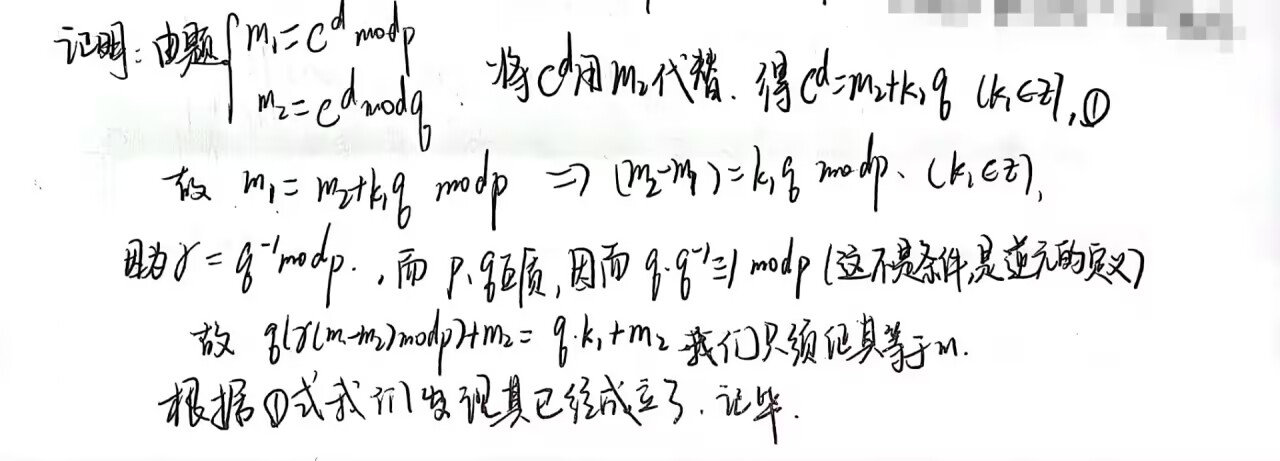 证明：由题{m₁=c^d mod p
m₂=c^d mod q . 将c^d用m₂代替. 得c^d=m₂+k₁q (k₁∈Z),①
故 m₁=m₂+k₁q mod p ⇒ (m₂-m₁)=k₁q mod p、(k₁∈Z),
因为γ=q⁻¹mod p.,而 p、q互质,因而 q·q⁻¹≡1 mod p(这不是条件,是逆元的定义)
故 q(γ(m₁-m₂)mod p)+m₂=q·k₁+m₂ 我们只须证其等于m.
根据①式我们发现其已经成立了.证毕.